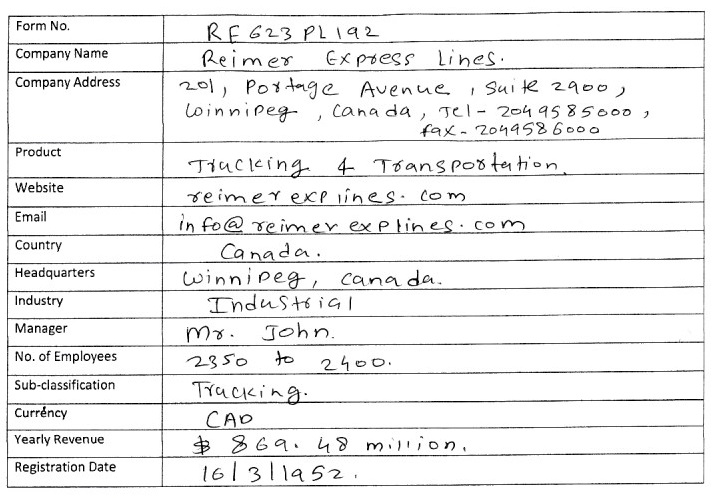 Form No. RF623PL192
Company Name Reimer Express Lines.
Company Address 201, Portage Avenue, Suite 2900,
Winnipeg, Canada, Tel- 2049585000,
fax- 2049586000
Product Trucking & Transportation.
Website reimerexplines.com
Email info@reimerexplines.com
Country Canada.
Headquarters Winnipeg, Canada.
Industry Industrial
Manager Mr. John.
No. of Employees 2350 to 2400.
Sub-classification Trucking.
Currency CAD
Yearly Revenue $ 869.48 million.
Registration Date 16/3/1952.